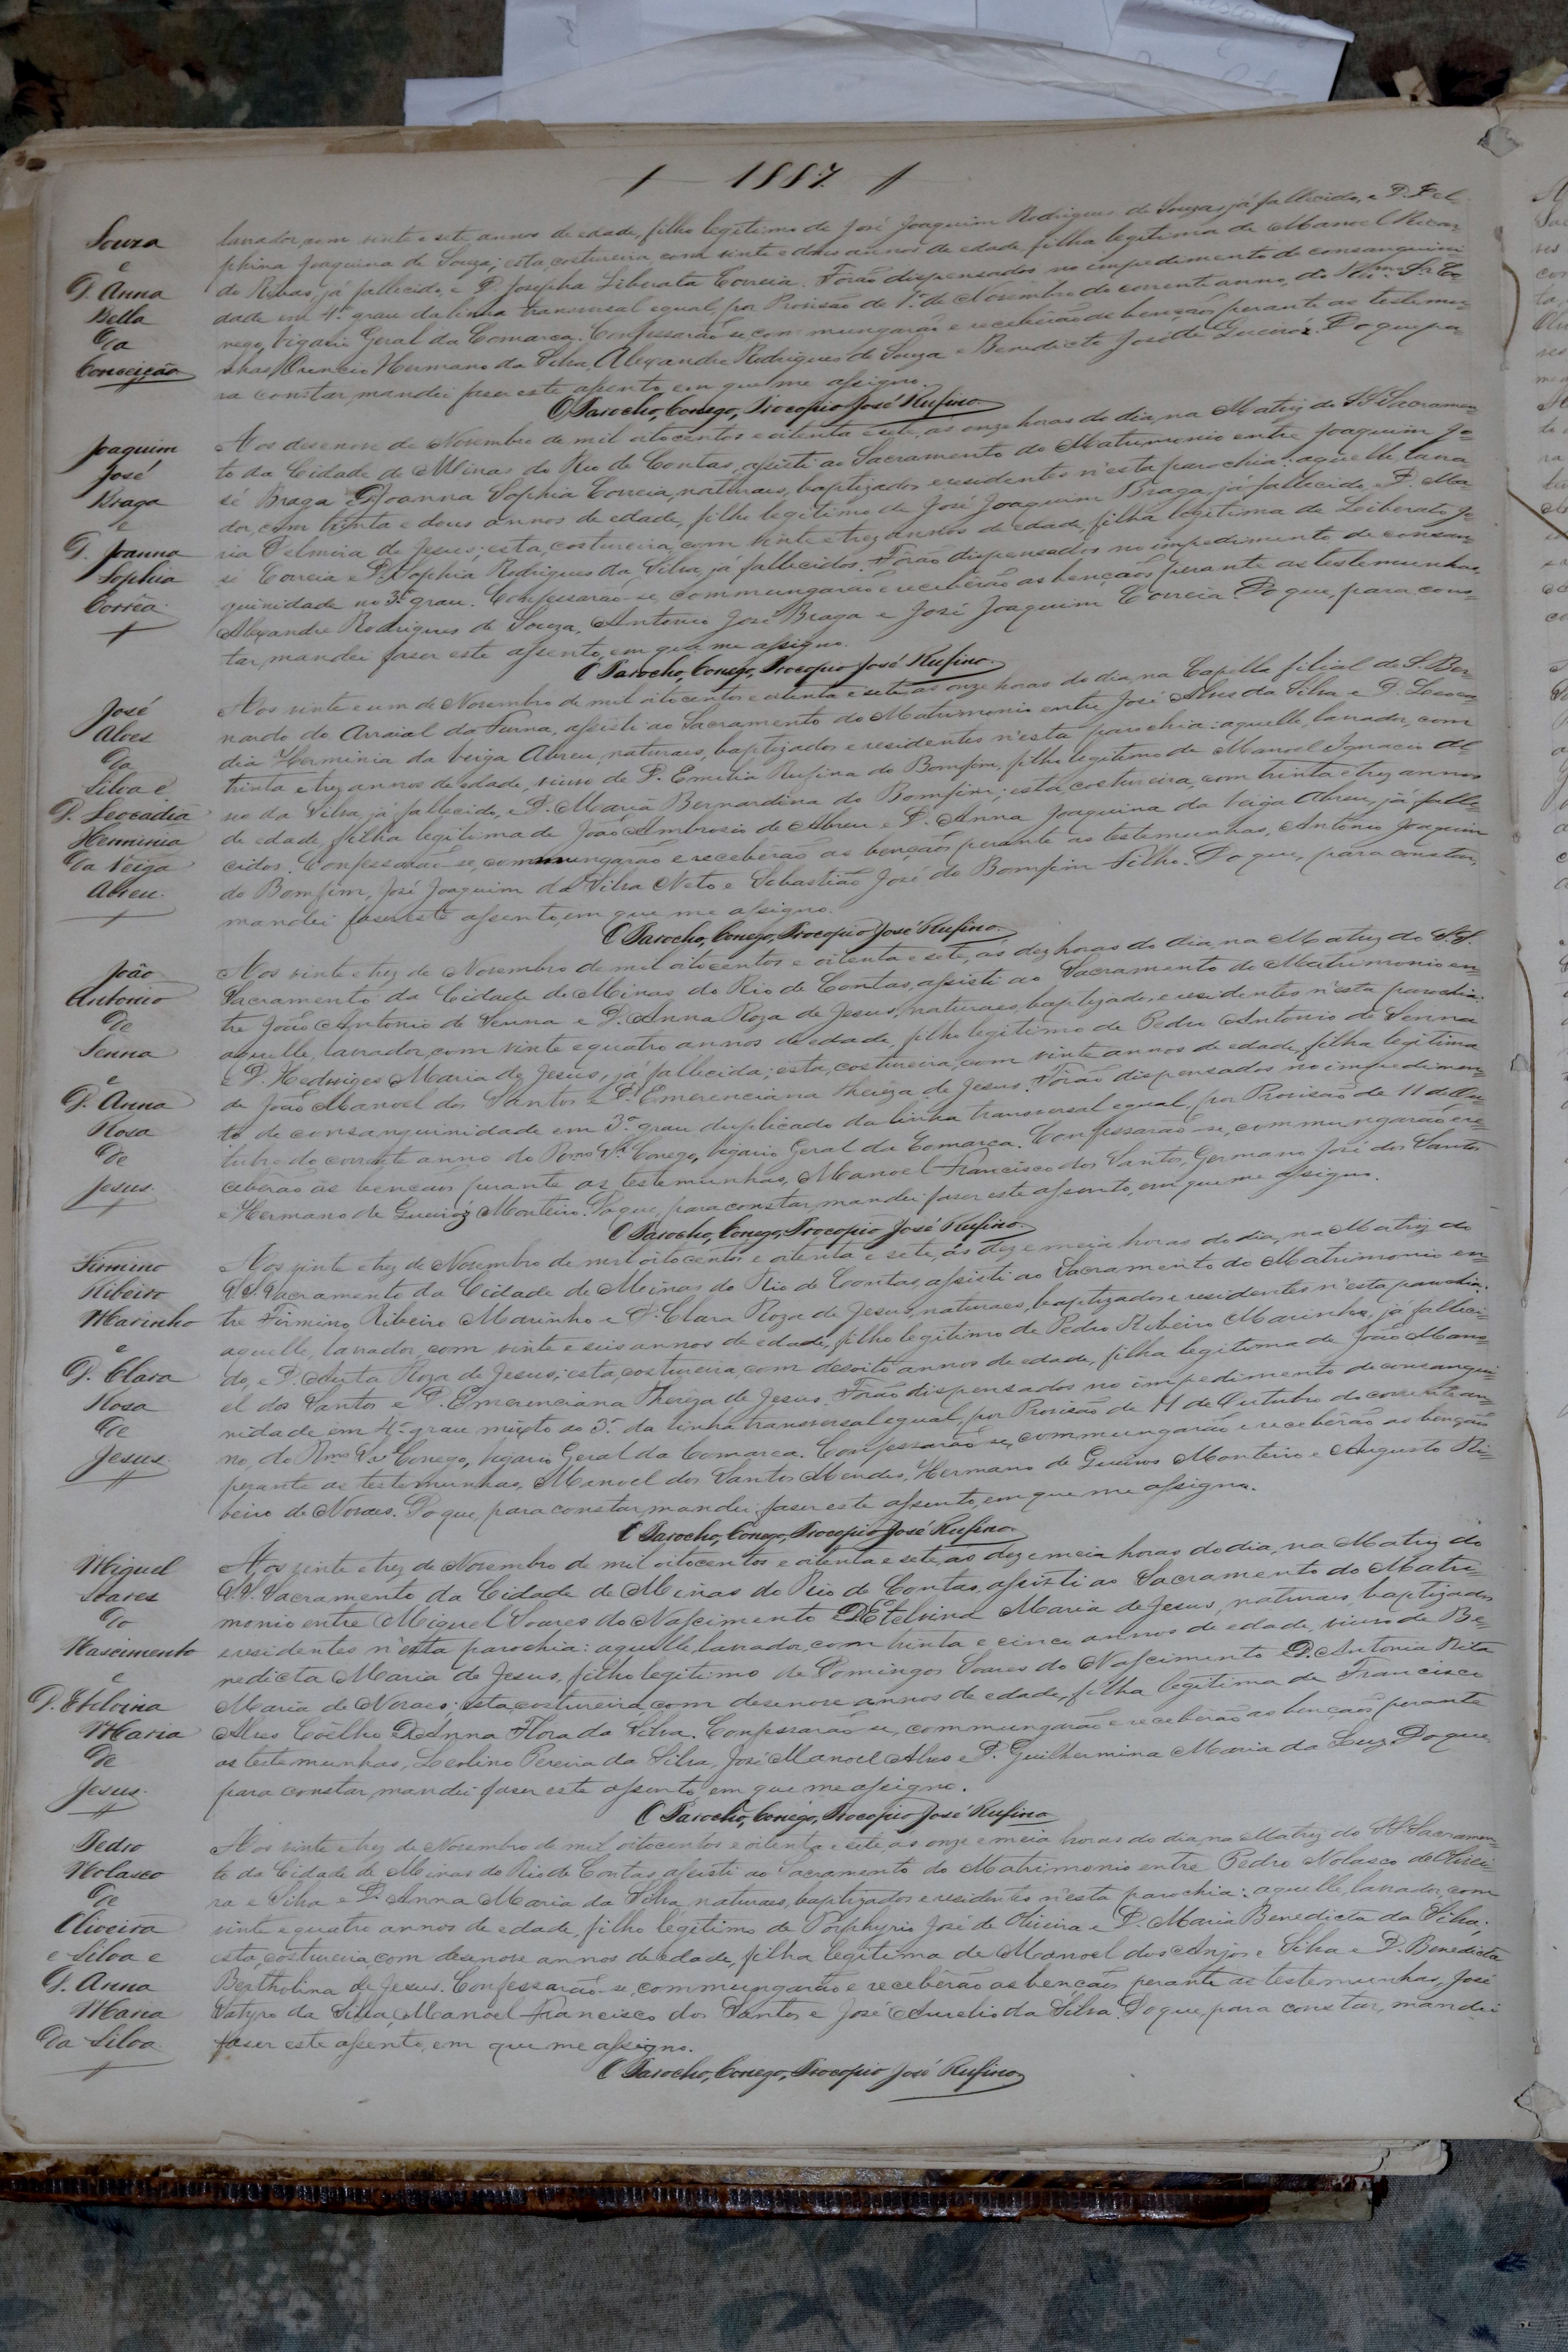 1887.
Souza
e
D. Anna
Bella
da
Conceição
lavrador, com vinte e sete annos de edade, filho legitimo de José Joaquim Rodrigues de Souza, já fallecido, e D. Del-
phina Joaquina de Souza; esta, costureira, com vinte e dous annos de edade, filha legitima de Manoel Ricar-
do Ribas, já fallecido, e D. Josepha Liberata Correia. Forão dispensados no impedimento de consanguini-
dade em 4º grau da linha transversal egual, por Provisão de 1º de Novembro do corrente anno, do Rmo Sr. Co-
nego, Vigario Geral da Comarca. Confessarão-se, commungarão e receberão as bençãos perante as testemu-
nhas, Hermano da Silva, Alexandre Rodrigues de Souza e Benedicto José de Queiróz. Do que, pa-
ra constar, mandei faser este assento, em que me assigno.
O Parocho, Conego, Procopio José Rufino
Joaquim
José
Braga
e
D. Joanna
Sophia
Corrêa.
Aos desenove de Novembro de mil oitocentos e oitenta e sete, as onze horas do dia, na Matriz do SS. Sacramen-
to da Cidade de Minas do Rio de Contas, assisti ao Sacramento do Matrimonio entre Joaquim Jo-
sé Braga e D. Joanna Sophia Correia, naturaes, baptizados e residentes n'esta parochia: aquelle lavra-
dor, com trinta e dous annos de edade, filho legitimo de José Joaquim Braga, já fallecido, e D. Ma-
ria Delmira de Jesus; esta, costureira, com vinte e trez annos de edade, filha legitima de Liberato Jo-
sé Correia e D. Sophia Rodrigues da Silva, já fallecidos. Forão dispensados no impedimento de consan-
guinidade no 3º grau. Confessarão-se, commungarão e receberão as bençãos perante as testemunhas,
Alexandre Rodrigues de Souza, Antonio José Braga e José Joaquim Correia. Do que, para cons-
tar, mandei faser este assento, em que me assigno.
O Parocho, Conego, Procopio José Rufino.
José
Alves
da
Silva e
D. Leocadia
Herminia
da Veiga
Abreu.
Aos vinte e um de Novembro de mil oitocentos e oitenta e sete, as onze horas do dia, na Capella filial de S. Ber-
nardo do Arraial da Furna, assisti ao Sacramento do Matrimonio entre José Alves da Silva e D. Leoca-
dia Herminia da Veiga Abreu, naturaes, baptizados e residentes n'esta parochia: aquelle, lavrador, com
trinta e trez annos de edade, viuvo de D. Emilia Rufina do Bomfim, filho legitimo de Manoel Ignacio Al-
ves da Silva, já fallecido, e D. Maria Bernardina do Bomfim; esta, costureira, com trinta e trez annos
de edade, filha legitima de João Ambrosio de Abreu e D. Anna Joaquina da Veiga Abreu, já falle-
cidos. Confessarão-se, commungarão e receberão as bençãos perante as testemunhas, Antonio Joaquim
do Bomfim, José Joaquim da Silva Neto e Sebastião José do Bomfim Filho. Do que, para constar,
mandei faser este assento, em que me assigno.
O Parocho, Conego, Procopio José Rufino.
João
Antonio
de
Senna
e
D. Anna
Rosa
de
Jesus.
Aos vinte e trez de Novembro de mil oitocentos e oitenta e sete, ás dez horas do dia, na Matriz do SS.
Sacramento da Cidade de Minas do Rio de Contas, assisti ao Sacramento do Matrimonio en-
tre João Antonio de Senna e D. Anna Roza de Jesus, naturaes, baptizados, e residentes n'esta parochia:
aquelle, lavrador, com vinte e quatro annos de edade, filho legitimo de Pedro Antonio de Senna
e D. Hedwiges Maria de Jesus, já fallecida; esta, costureira, com vinte annos de edade, filha legitima
de João Manoel dos Santos e D. Emerenciana Thereza de Jesus. Forão dispensados no impedimen-
to de consanguinidade em 3º grau duplicado da linha transversal egual, por Provisão de 11 de Ou-
tubro do corrente anno do Rmo Sr. Conego, Vigario Geral da Comarca. Confessarão-se, commungarão e re-
ceberão as bençãos perante as testemunhas, Manoel Francisco dos Santos, Germano José dos Santos
e Hermano de Queiroz Monteiro. Do que, para constar, mandei faser este assento, em que me assigno.
O Parocho, Conego, Procopio José Rufino.
Firmino
Ribeiro
Marinho
e
D. Clara
Rosa
de
Jesus.
Aos vinte e trez de Novembro de mil oitocentos e oitenta e sete, ás dez e meia horas do dia, na Matriz do
SS. Sacramento da Cidade de Minas do Rio de Contas, assisti ao Sacramento do Matrimonio en-
tre Firmino Ribeiro Marinho e D. Clara Roza de Jesus, naturaes, baptizados e residentes n'esta parochia:
aquelle, lavrador, com vinte e seis annos de edade, filho legitimo de Pedro Ribeiro Marinho, já falleci-
do, e D. Anta Roza de Jesus; esta, costureira, com desoito annos de edade, filha legitima de João Mano-
el dos Santos e D. Emerenciana Thereza de Jesus. Forão dispensados no impedimento de consangui-
nidade em 4º grau mixto ao 3º da linha transversal egual, por Provisão de 11 de Outubro do corrente an-
no, do Rmo Sr. Conego, Vigario Geral da Comarca. Confessarão-se, commungarão e receberão as bençãos
perante as testemunhas, Manoel dos Santos Mendes, Hermano de Queiros Monteiro e Augusto Ri-
beiro de Novaes. Do que, para constar, mandei faser este assento, em que me assigno.
O Parocho, Conego, Procopio José Rufino.
Miguel
Soares
do
Nascimento
e
D. Etelvina
Maria
de
Jesus.
Aos vinte e trez de Novembro de mil oitocentos e oitenta e sete, as dez e meia horas do dia, na Matriz do
SS. Sacramento da Cidade de Minas do Rio de Contas, assisti ao Sacramento do Matri-
monio entre Miguel Soares do Nascimento e D. Etelvina Maria de Jesus, naturaes, baptizados
e residentes n'esta parochia: aquelle, lavrador, com trinta e cinco annos de edade, viuvo de Be-
nedicta Maria de Jesus, filho legitimo de Domingos Soares do Nascimento e D. Antonia Rita
Maria de Novaes; esta, costureira, com desenove annos de edade, filha legitima de Francisco
Alves Coêlho e D. Anna Flora da Silva. Confessarão-se, commungarão e receberão as bençãos perante
as testemunhas, Leolino Pereira da Silva, José Manoel Alves e D. Guilhermina Maria da Luz. Do que,
para constar, mandei faser este assento, em que me assigno.
O Parocho, Conego, Procopio José Rufino
Pedro
Nolasco
de
Oliveira
e Silva e
D. Anna
Maria
da Silva.
Aos vinte e trez de Novembro de mil oitocentos e oitenta e sete, as onze e meia horas do dia, na Matriz do SS. Sacramen-
to da Cidade de Minas do Rio de Contas, assisti ao Sacramento do Matrimonio entre Pedro Nolasco de Olivei-
ra e Silva e D. Anna Maria da Silva, naturaes, baptizados e residentes n'esta parochia: aquelle, lavrador, com
vinte e quatro annos de edade, filho legitimo de Porphyrio José de Oliveira e D. Maria Benedicta da Silva;
esta, costureira, com desenove annos de edade, filha legitima de Manoel dos Anjos e Silva e D. Benedicta
Bertholina de Jesus. Confessarão-se, commungarão e receberão as bençãos perante as testemunhas, José
Satyro da Silva, Manoel Francisco dos Santos e José Aurelio da Silva. Do que, para constar, mandei
faser este assento, em que me assigno.
O Parocho, Conego, Procopio José Rufino